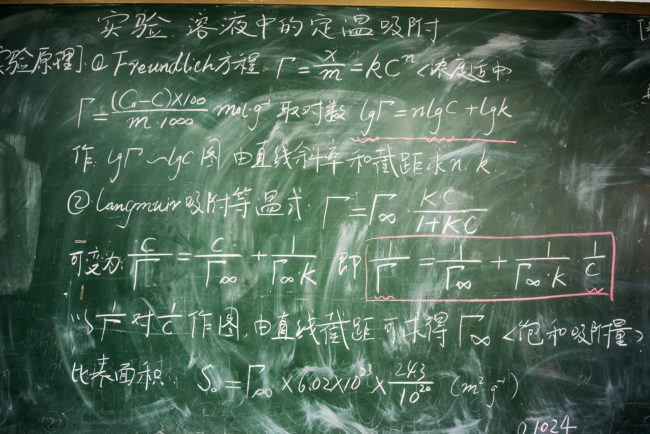 实验 溶液中的定温吸附
实验原理] ① Freundlich方程. Γ = x/m = kCⁿ <浓度适中
Γ = (C₀-C)×100/m·1000 mol·g⁻¹ 取对数 lgΓ = nlgC + lgk
作 lgΓ~lgC 图 由直线斜率和截距求n.k.
② Langmuir吸附等温式: Γ = Γ∞ KC/1+KC
可变为: C/Γ = C/Γ∞ + 1/Γ∞·K 即 1/Γ = 1/Γ∞ + 1/Γ∞·K · 1/C
以 1/Γ 对 1/C 作图, 由直线截距可求得 Γ∞ <饱和吸附量>
比表面积: S₀ = Γ∞ ×6.02×10²³× 24.3/10²⁰ (m²g⁻¹)
0.1024